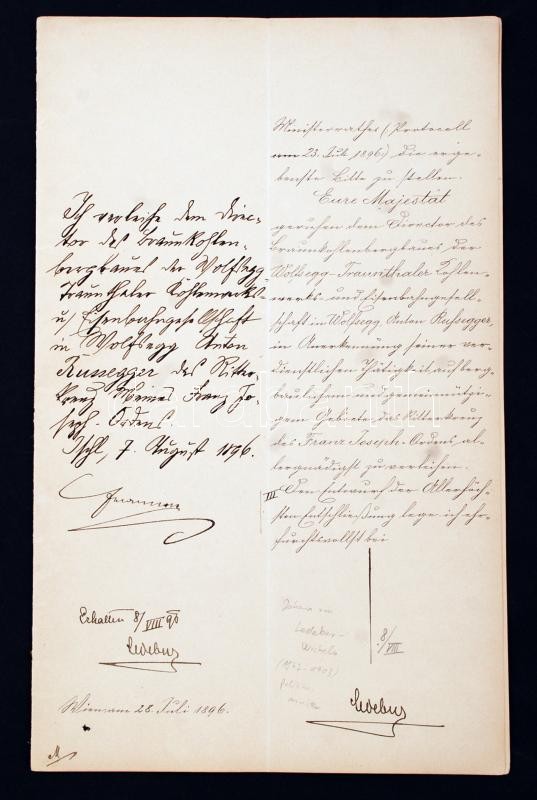 Ich verleihe dem Direc-
tor des Braunkohlen-
bergbaues der Wolfsegg-
Traunthaler Kohlenwerks-
u/ Eisenbahngesellschaft
in Wolfsegg Anton
Russegger das Ritter-
kreuz Meines Franz Jo-
seph-Ordens
Ischl, 7. August 1896.
Erhalten 8/VIII 96
Ledebur
Wien am 28. Juli 1896.
Ministerrathes (Protocoll
vom 23. Juli 1896.) die erge-
benste Bitte zu stellen.
Eure Majestät
geruhen dem Director des
Braunkohlenbergbaues der
Wolfsegg-Traunthaler Kohlen-
werks- und Eisenbahngesell-
schaft in Wolfsegg, Anton Russegger,
in Anerkennung seiner ver-
dienstlichen Thätigkeit auf berg-
baulichem und gemeinnützi-
gem Gebiete das Ritterkreuz
des Franz Joseph-Ordens al-
lergnädigst zu verleihen.
III Den Entwurf der Allerhöch-
sten Entschließung lege ich ehr-
furchtsvollst bei
8/VIII
Ledebur-
Ledebur